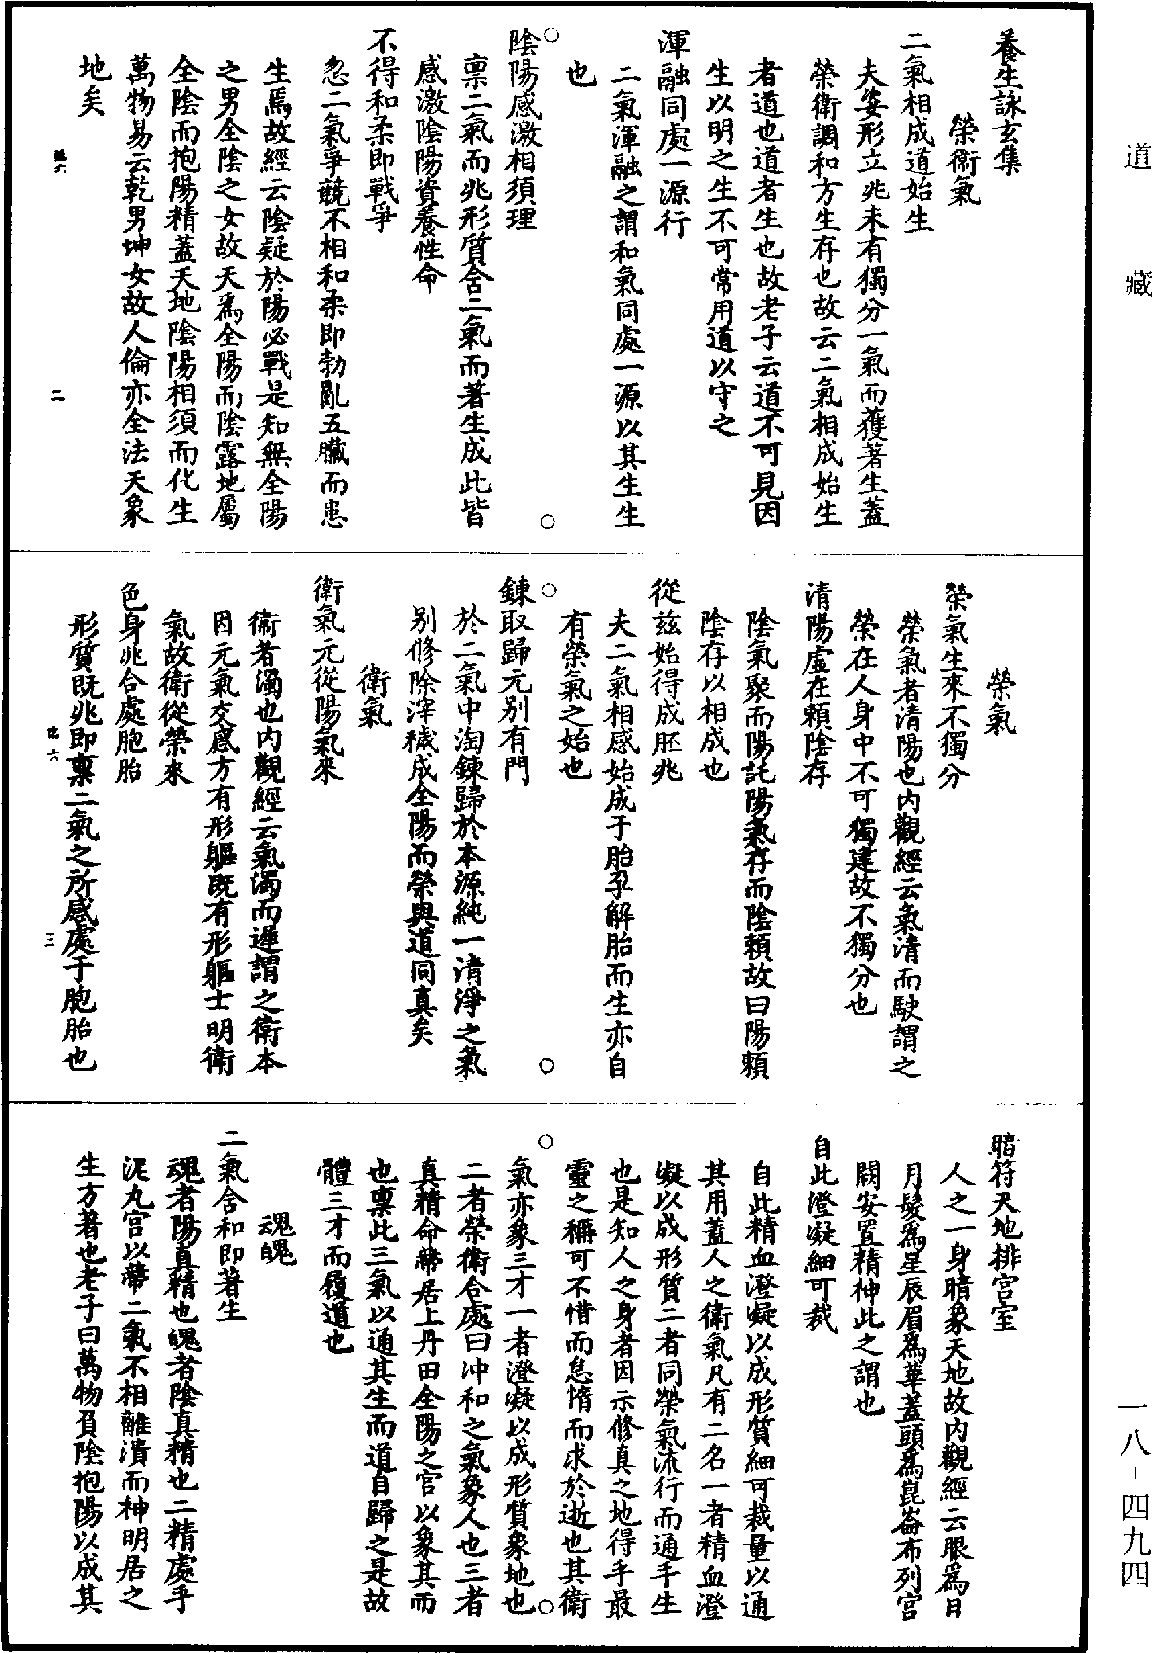 道藏
養生詠玄集
榮衛氣
二氣相成道始生
夫姿形立兆未有獨分一氣而獲著生蓋
榮衛調和方生存也故云二氣相成始生
者道也道者生也故老子云道不可見因
生以明之生不可常用道以守之
渾融同處一源行
二氣渾融之謂和氣同處一源以其生生
也
陰陽感激相須理
稟二氣而兆形質含二氣而著生成此皆
感激陰陽資養性命
不得和柔即戰爭
忽二氣爭競不相和柔即勃亂五臟而患
生焉故經云陰疑於陽必戰是知無全陽
之男全陰之女故天為全陽而陰露地屬
全陰而抱陽精蓋天地陰陽相須而化生
萬物易云乾男坤女故人倫亦全法天象
地矣
二
榮氣
榮氣生來不獨分
榮氣者清陽也內觀經云氣清而駛謂之
榮在人身中不可獨建故不獨分也
清陽虛在賴陰存
陰氣聚而陽託陽氣存而陰賴故曰陽賴
陰存以相成也
從茲始得成胚兆
夫二氣相感始成于胎孕解胎而生亦自
有榮氣之始也
鍊取歸元別有門
於二氣中淘鍊歸於本源純一清淨之氣
別修除滓穢成全陽而榮與道同真矣
衛氣
衛氣元從陽氣來
衛者濁也內觀經云氣濁而遲謂之衛本
因元氣交感方有形軀既有形軀士明衛
氣故衛從榮來
色身兆合處胞胎
形質既兆即稟二氣之所感處于胞胎也
三
暗符天地排宮室
人之一身暗象天地故內觀經云眼為日
月髮為星辰眉為華蓋頭為崑崙布列宮
闕安置精神此之謂也
自此澄凝細可裁
自此精血澄凝以成形質細可裁量以通
其用蓋人之衛氣凡有二名一者精血澄
凝以成形質二者同榮氣流行而通乎生
也是知人之身者因示修真之地得乎最
靈之稱可不惜而怠惰而求於逝也其衛
氣亦象三才一者澄凝以成形質象地也
二者榮衛合處曰沖和之氣象人也三者
真精命帶居上丹田全陽之官以象其而
也稟此三氣以通其生而道自歸之是故
體三才而履道也
魂魄
二氣含和即著生
魂者陽真精也魄者陰真精也二精處乎
泥丸宮以帶二氣不相離潰而神明居之
生方著也老子曰萬物負陰抱陽以成其
一八-四九四